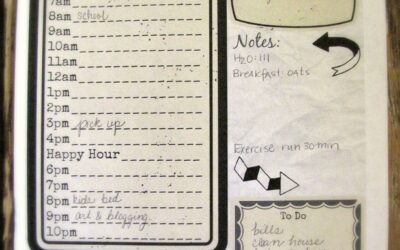 7am
8am school
9am
10am
11am
12am
1pm
2pm
3pm pick up
4pm
Happy Hour
6pm
7pm
8pm kids bed
9pm art & blogging
10pm
Notes:
H2O: III
Breakfast: oats
Exercise: run 30 min
To Do
bills
clean house